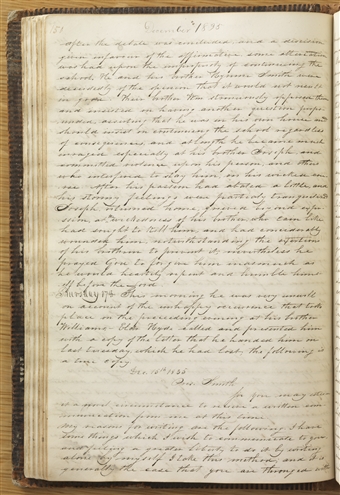 151 December 1835
After the debate was concluded and a decision
given in favour of the affirmative some altercation
was had upon the impropriety of continuing the
school. He and his brother Hyrum Smith were
decidedly of the opinion that it would not result
in good. Their brother Wm strenuously opposed them
and insisted on having another question propo-
unded, asserting that he was in his own house and
should insist on continuing the school regardless
of consequences, and at length he became much
enraged especially at his brother Joseph and
committed violence upon his person, and others
who interfered to stay him in his wicked
After his passion had abated a little and
his feelings were partially tranquilized
Joseph returned home grieved beyond expre-
ssion at wickedness of his brother who Cain like
had sought to kill him, and had considerably
wounded him, notwithstanding the exertions
of his brothers to prevent it, nevertheless he
prayed God to forgive him, inasmuch as
he would heartily repent and humble hims-
elf before the Lord
Thursday 17th This morning he was very unwell
on account of the unhappy occurrence that took
place in the proceeding evening at his brother
Williams. Elder Hyde called and presented him
with a copy of the letter that he handed him on
last tuesday which he had lost, the following is
a true copy
Dec. 15th 1835
Pres. Smith
Sir you may esteem
it a novel circumstance to receive a written com-
munication from me at this time
My reasons for writing are the following I have
some things which I wish to communicate to you
and feeling a greater liberty to do it by writing
alone by myself I take this method, and it is
generally the case that you are thronged with